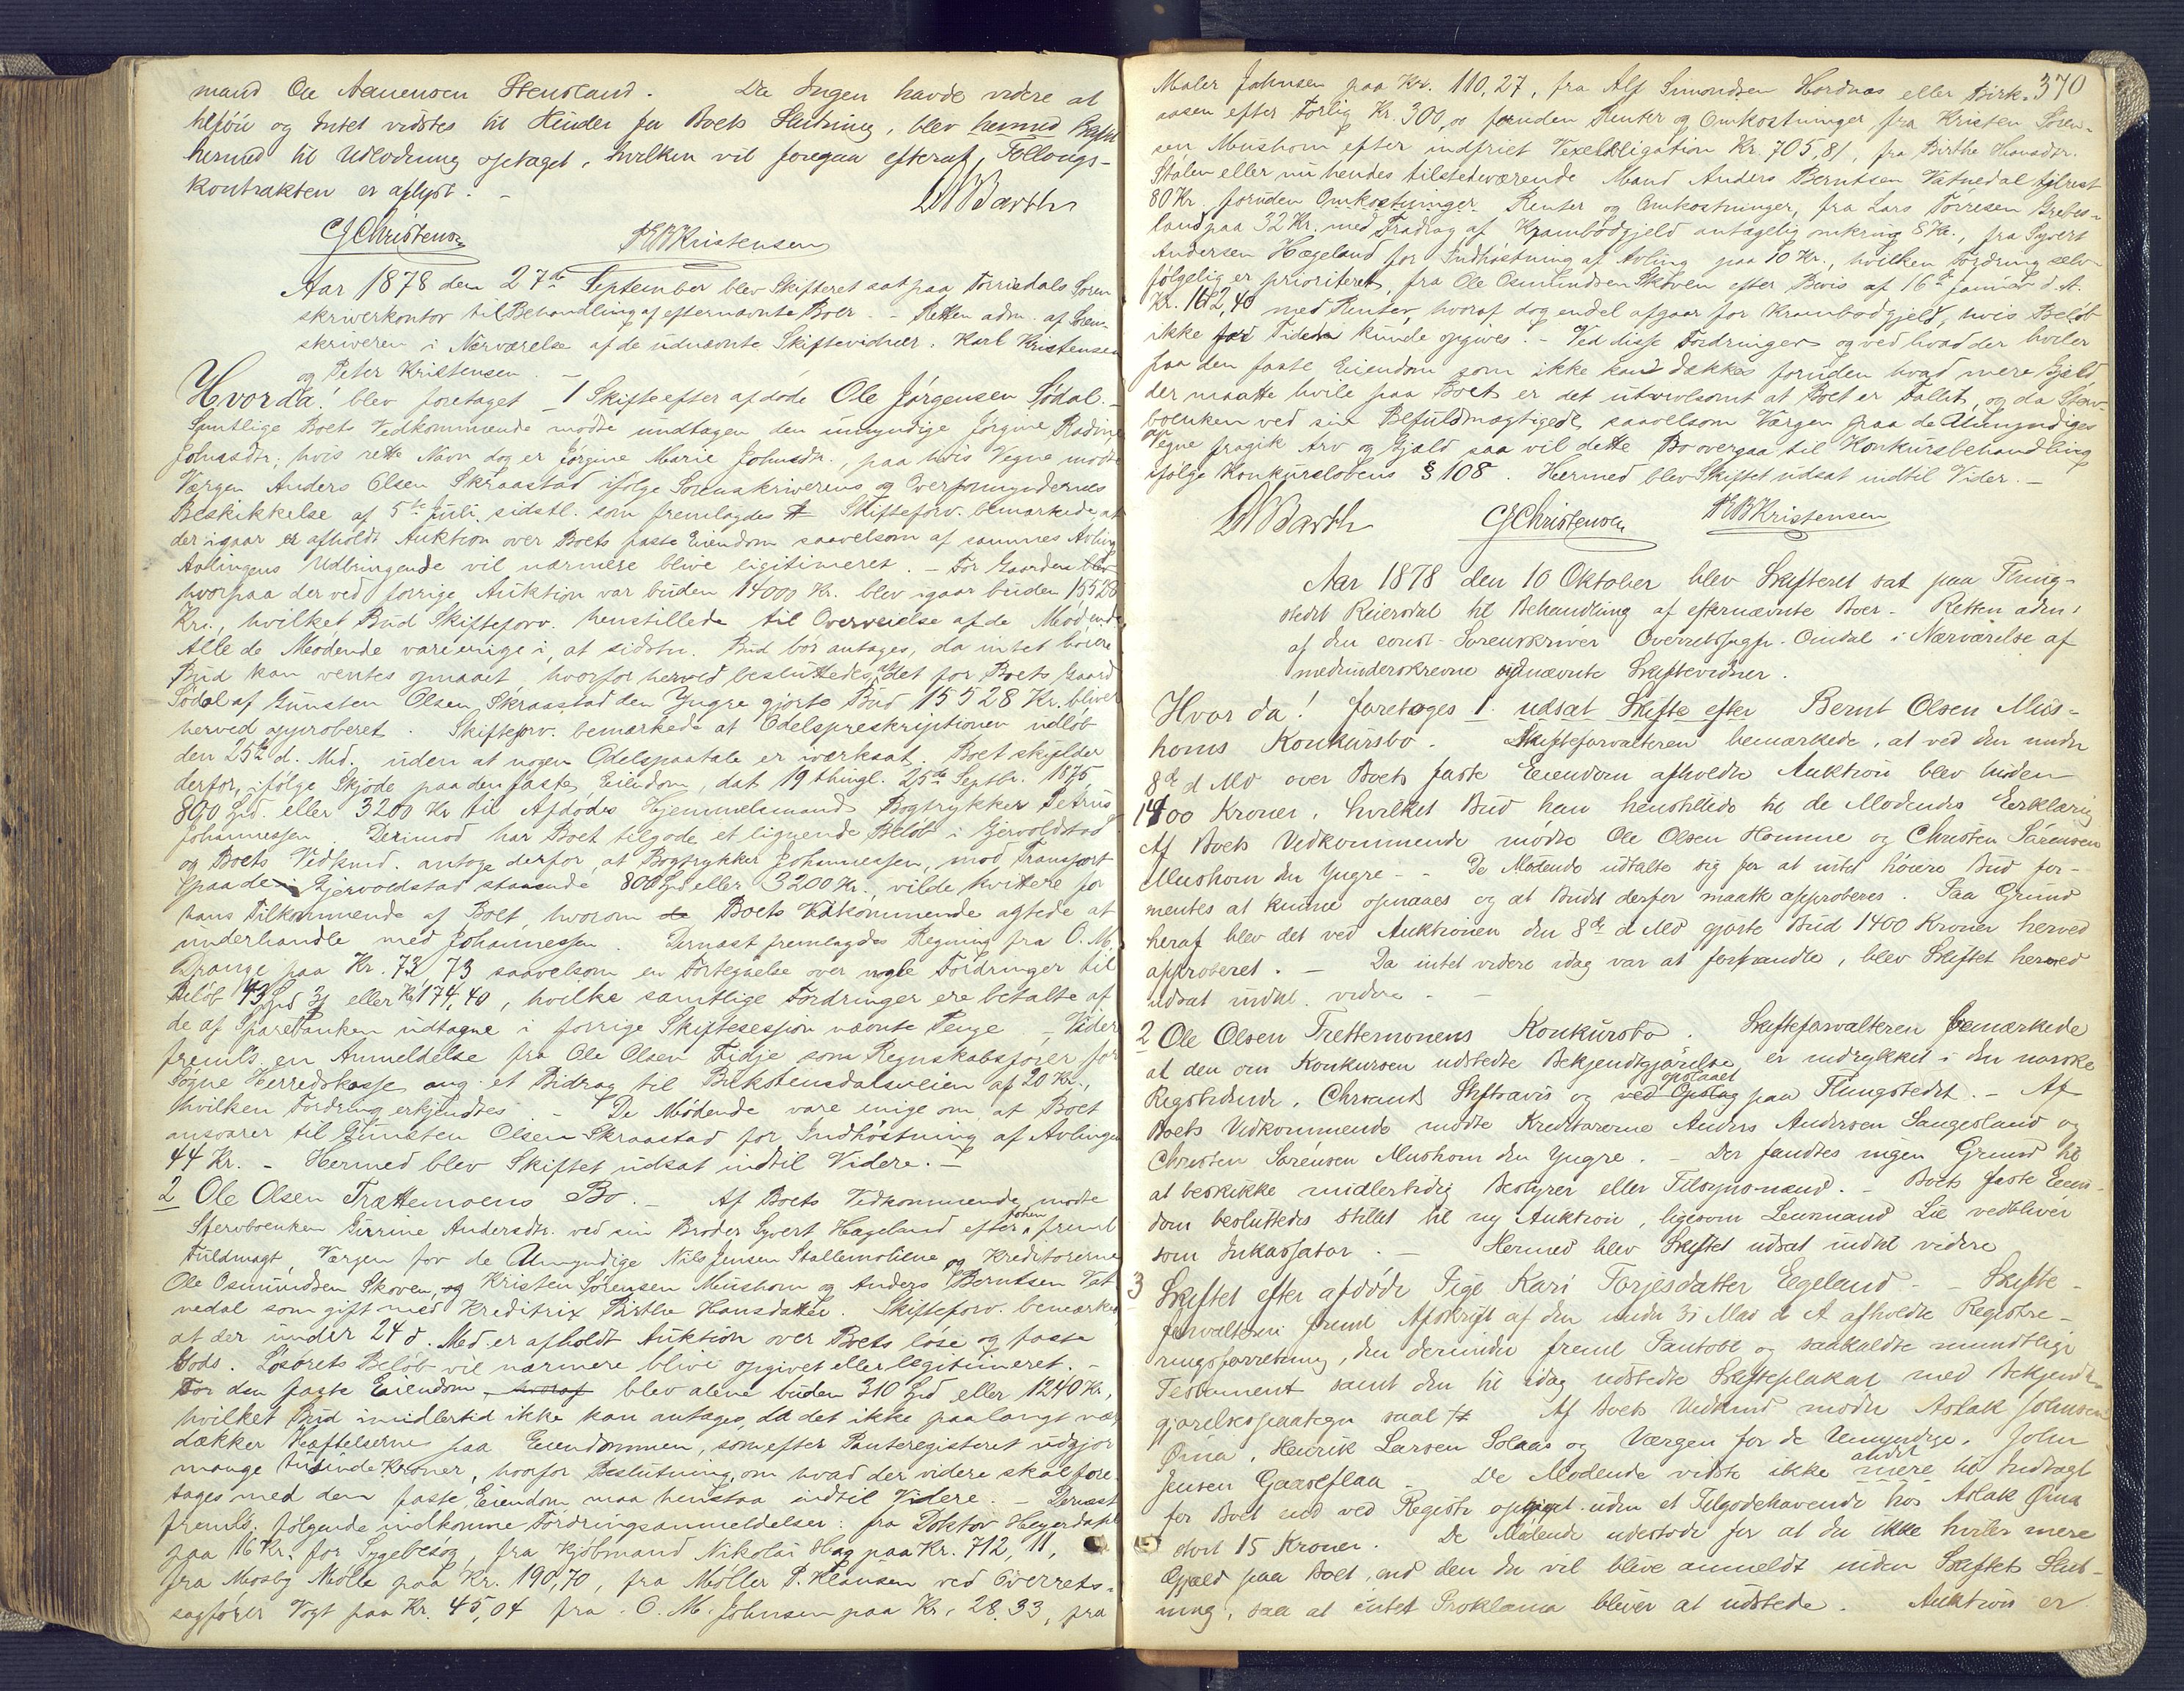 mand Ole Aanensen Stensland. Da Ingen havde videre at
tilføie og Intet vidstes til Hinder for Boets Slutning, blev
hermed til Udlodning optaget, hvilken vil foregaa efteraf, Follougs-
kontrakten er aflyst. –
CJChristensen PBKristensen
Aar 1878 den 27de September blev Skifteret sat paa Torridals Soren
skriverkontor til Behandling af efternævnte Boer. – Retten adm. af Soren
skriveren i Nærværelse af de udnævnte Skiftevidner. Karl Kristensen
og Peter Kristensen. –
Hvorda! blev foretaget 1 Skifte efter afdøde Ole Jørgensen Sødal. –
Samtlige Boets Vedkommende mødte undtagen den umyndige Jørgine Radine
Johnsdtr., hvis rette Navn dog er Jørgine Marie Johnsdtr., paa hvis Vegne mødte
Værgen Anders Olsen Skraastad ifølge Sorenskriverens og Overformyndernes
Beskikkelse af 5te Juli sidstl. som fremlagdes # Skifteforv. bemærkede at
der igaar er afholdt Auktion over Boets faste Eiendom saavelsom af sammes Avling
Avlingens Udbringende vil nærmere blive legitimeret. – For Gaarden blev
hvorpaa der ved forrige Auktion var buden 14000 Kr. blev igaar buden 15528
Kr., hvilket Bud Skifteforv. henstillede til Overveielse af de Mødende
Alle de Mødende vare enige i, at sidstn. Bud bør antages, da intet høiere
Bud kan ventes opnaaet, hvorfor herved besluttedes, at det for Boets Gaard
Sødal af Gunsten Olsen Skraastad den Yngre gjorte Bud 15528 Kr. bliver
herved approberet. Skifteforv. bemærkede at Odelspreskriptionen udløb
den 25de d. Md. uden at nogen Odelspaatale er iværksat. Boet skylder
derfor, ifølge Skjøde paa den faste Eiendom, dat 19 thingl. 25de Septbr. 1875
800 Spd. eller 3200 Kr til Afdødes Hjemmelsmand Bogtrykker Petrus
Johannessen. Derimod har Boet tilgode et lignende Beløb i Gjervoldstad
og Boets Vedkmd. antoge derfor, at Bogtrykker Johannessen, mod Transport
paa de i Gjervoldstad staaende 800 Spd eller 3200 Kr., vilde kvittere for
hans Tilkommende af Boet, hvorom de Boets Vedkommende agtede at
underhandle med Johannessen. Dernæst fremlagdes Regning fra O. M.
Drange paa Kr. 73,73 saavelsom en Fortegnelse over nogle Fordringer til
Beløb 43 Spd 3 eller Kr 174,40, hvilke samtlige Fordringer ere betalte af
de af Sparebanken udtagne i forrige Skiftesession nævnte Penge. – Videre
fremls. en Anmeldelse fra Ole Olsen Tidje som Regnskabsfører for
Søgne Herredskasse ang. et Bidrag til Brekstensdalsveien af 20 Kr.,
hvilken Fordring erkjendtes. – De Mødende vare enige om, at Boet
ansvarer til Gunsten Olsen Skraastad for Indhøstning af Avlingen
44 Kr. – Hermed blev Skiftet udsat indtil Videre. –
2 Ole Olsen Trættemoens Bo. – Af Boets Vedkommende mødte
Stervboenken Gurine Andersdtr. ved sin Broder Syvert Hægeland efter fremlagt
Fuldmagt, Værgen for de Umyndige Nils Jensen Stallemoliene og Kreditorerne
Ole Osmundsen Skoven, og Kristen Sørensen Mushom og Anders Berntsen Vat
nedal som gift med Kreditrix Birthe Hansdatter. Skifteforv. bemærkede
at der under 24 d. Md. er afholdt Auktion over Boets løse og faste
Gods. Løsørets Beløb vil nærmere blive opgivet eller legitimeret. –
For den faste Eiendom hvoraf blev alene buden 310 Spd eller 1240 Kr.,
hvilket Bud imidlertid ikke kan antages, da det ikke paa langt nær
dækker Heftelserne paa Eiendommen, som efter Panteregisteret udgjør
mange tusinde Kroner, hvorfor Beslutning, om hvad der videre skal fore
tages med den faste Eiendom maa henstaa indtil Videre. – Dernæst
fremls. følgende indkomne Fordringsanmeldelser: fra Doktor Heyerdahl
paa 16 Kr. for Sygebesøg, fra Kjøbmand Nikolai Hag paa Kr. 712,11,
fra Mosby Mølle paa Kr. 190,70, fra Møller P. Klausen ved Overrets-
sagfører Vogt paa Kr. 45,04 fra O. M. Johnsen paa Kr. 28,33, fra
370
Maler Johnsen paa Kr. 110,27, fra Alf Simondsen Hordnas eller Birk-
aasen efter Forlig Kr. 300,00 foruden Renter og Omkostninger, fra Kristen Søren-
sen Mushom efter indfriet Vexelobligation Kr. 705,81, fra Birthe Hansdtr.
Stølen eller nu hendes tilstedeværende Mand Anders Berntsen Vatnedal tilrest
80 Kr. foruden Omkostninger. Renter og Omkostninger, fra Lars Torresen Grebes-
land paa 32 Kr. med Fradrag af Krambodgjeld antagelig omkring 8 Kr., fra Syvert
Andersen Hægeland for Indhøstning af Avling paa 10 Kr., hvilken Fordring selv-
følgelig er prioriteret, fra Ole Osmundsen Skoven efter Bevis af 16de Januar d. A.
Kr. 162,40 med Renter, hvoraf dog endel afgaar for Krambodgjeld, hvis Beløb
ikke for Tiden kunde opgives. – Ved disse Fordringer og ved hvad der hviler
paa den faste Eiendom som ikke kan dækkes foruden hvad mere Gjæld
der maatte hvile paa Boet er det utvivlsomt at Boet er Fallit, og da Sterv-
boenken ved sin Befuldmægtigede saavelsom Værgen paa de Umyndiges
Vegne fragik Arv og Gjæld saa vil dette Bo overgaa til Konkursbehandling
ifølge Konkurslovens § 108. Hermed blev Skiftet udsat indtil Vider. –
CJChristensen PBKristensen
Aar 1878 den 10 Oktober blev Skifteret sat paa Thing-
stedet Reiersdal til Behandling af efternævnte Boer. Retten adm.
af den const. Sorenskriver Overretssagfr. Omdal i Nærværelse af
medunderskrevne udnævnte Skiftevidner.
Hvor da! foretoges 1. udsat Skifte efter Bernt Olsen Mus-
homs Konkursbo. Skifteforvalteren bemærkede, at ved den under
8de d Md over Boets faste Eiendom afholdte Auktion blev buden
1400 Kroner, hvilket Bud han henstillede til de Mødendes Erklæring
Af Boets Vedkommende mødte Ole Olsen Homme og Christen Sørensen
Mushom den Yngre. – De Mødende udtalte sig for at intet høiere Bud for-
mentes at kunne opnaaes og at Budet derfor maatte approberes. Paa Grund
heraf blev det ved Auktionen den 8de d Md gjorte Bud 1400 Kroner herved
approberet. – Da intet videre idag var at forhandle, blev Skiftet hermed
udsat indtil videre. –
2 Ole Olsen Trettemonens Konkursbo. Skifteforvalteren bemærkede
at den om Konkursen udstedte Bekjendtgjørelse er indrykket i den norske
Rigstidende, Chrsands Stiftsavis og ved Opslag opslaaet paa Thingstedet. – Af
Boets Vedkommende mødte Kreditorerne Anders Andersen Langesland og
Christen Sørensen Mushom den Yngre. – Der fandtes ingen Grund til
at beskikke midlertidig Bestyrer eller Tilsynsmænd. – Boets faste Eien-
dom besluttedes stillet til ny Auktion, ligesom Lensmand Lie vedbliver
som Inkassator. – Hermed blev Skiftet udsat indtil videre
3 Skiftet efter afdøde Pige Kari Torjesdatter Egeland – Skifte-
forvalteren freml Afskrift af den under 31 Mai d A afholdte Registre-
ringsforretning, den derunder freml Pantobl og saakaldte mundtlige
Testament samt den til idag udstedte Skifteplakat med Bekjendt-
gjørelsespaategn saal # Af Boets Vedkmd mødte Aslak Johnsen
Øina, Henrik Larsen Solaas og Værgen for de Umyndige. John
Jensen Gaaseflaa. De Mødende vidste ikke mere andet til Indtægt
for Boet end ved Registr opgivet uden et Tilgodehavende hos Aslak Øina
stort 15 Kroner. De Mødende udestode for at der ikke hviler mere
Gjæld paa Boet, end den der vil blive anmeldt inden Skiftets Slut-
ning, saa at intet Proklama bliver at udstede. Auktion er